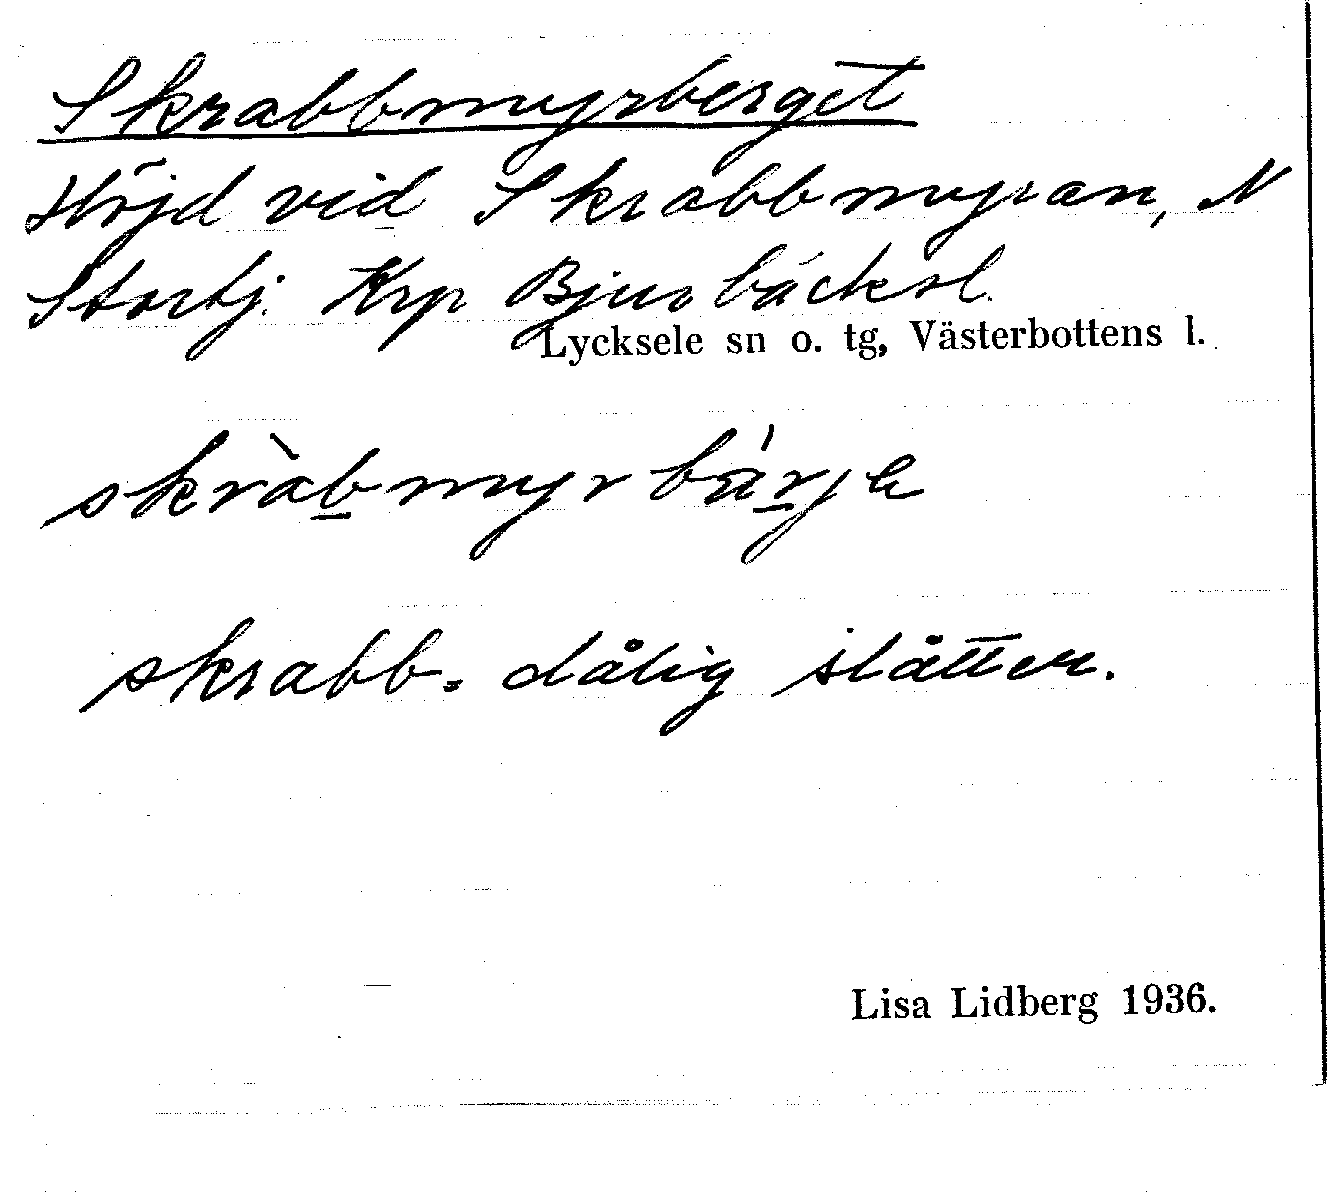 Skrabbmyrberget
Höjd vid Skrabbmyran, N
Stortj. Krp Bjurbäcksl.
Lycksele sn o. tg, Västerbottens l.
skràb̲myrbár̲je
skrabb = dålig slåtter.
Lisa Lidberg 1936.